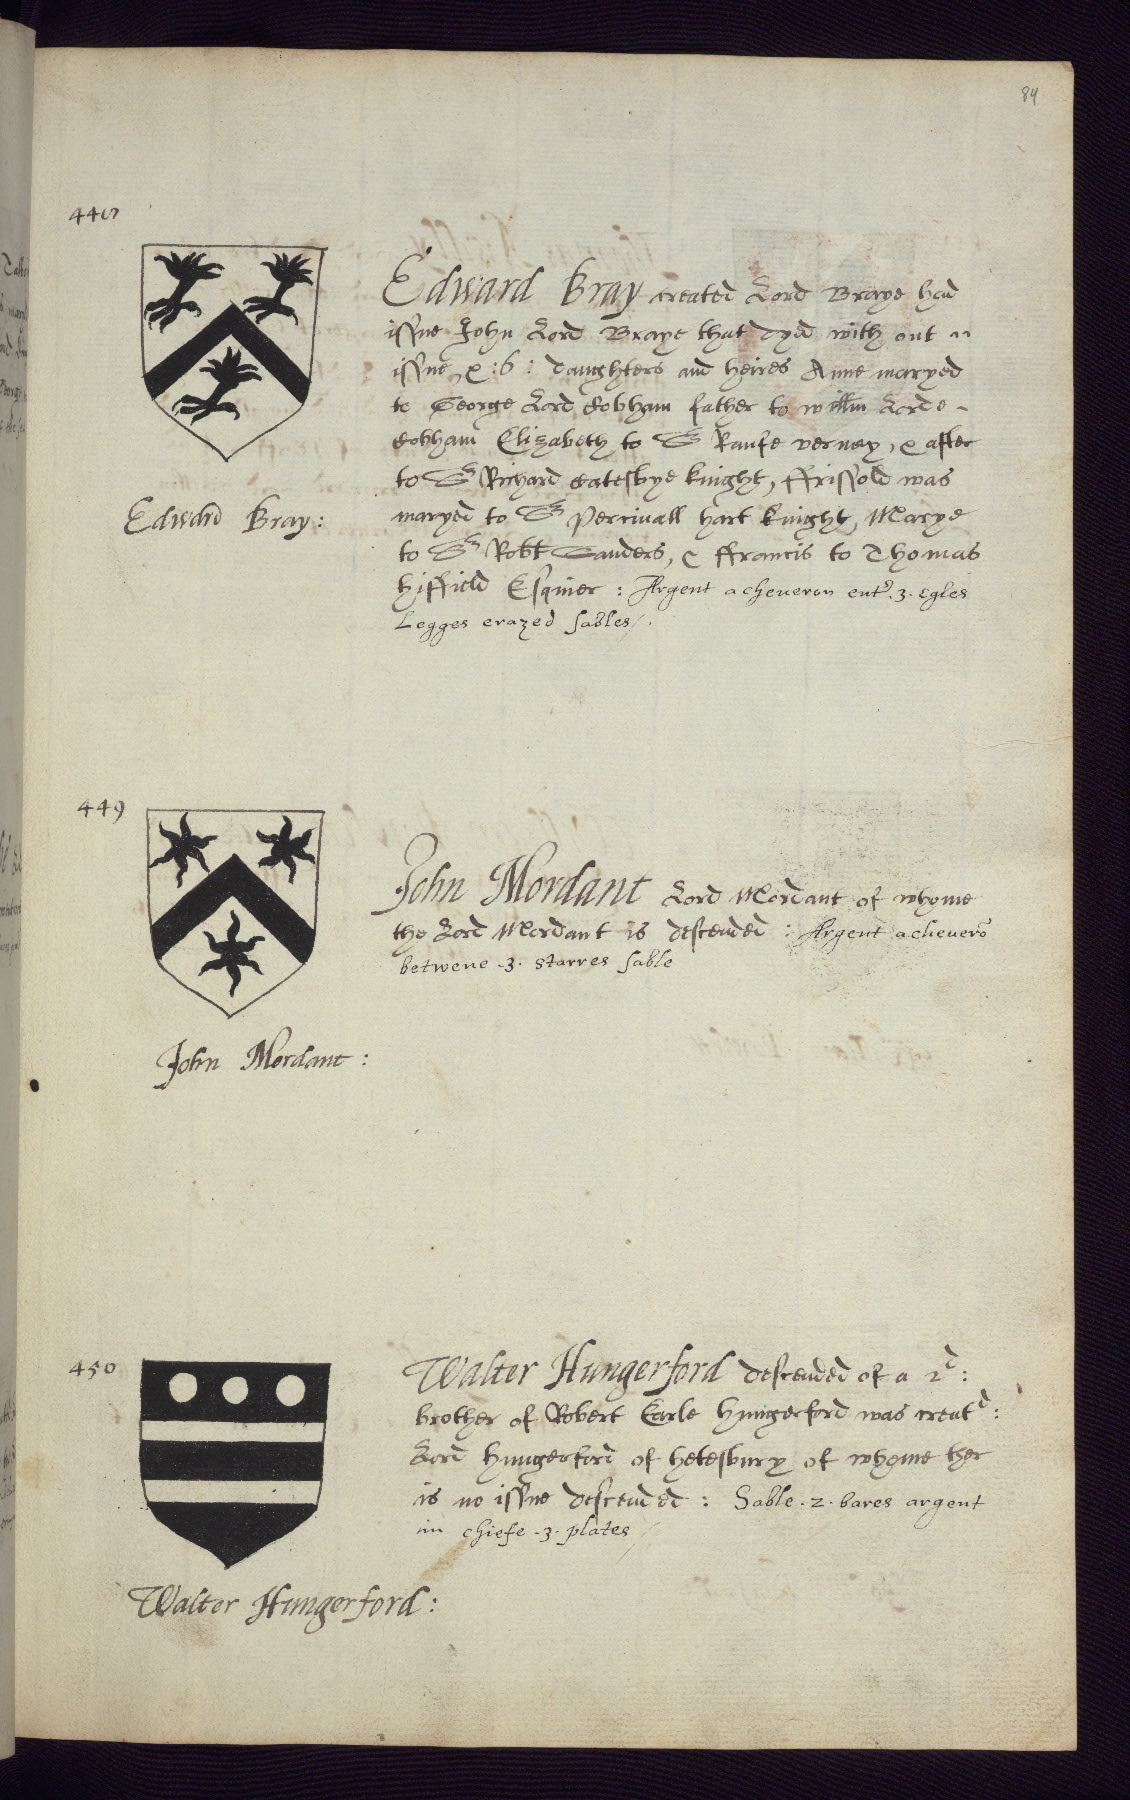 84
448
Edward Bray created Lord Braye had
issue John Lord Braye that dyed with out
issue, & :6: daughters and heires Anne maryed
to George Lord Cobham father to willm Lorde
Cobham Elizabeth to Sr Raufe vernay, & after
to Sr Richard Catesbye knight, ffrissold was
maryed to Sr Percivall hart knight, Marye
to Sr Robt Sanders, & ffrancis to Thomas
hiffield Esquier : Argent a cheveron ent. 3. egles
Legges erazed sables/.
Edward Bray:
449
John Mordant Lord Mordant of whome
the Lord Mordant is descended : Argent a cheverō
betwene .3. starres sable
John Mordant :
450
Walter Hungerford descended of a 2d:
brother of Robert Earle Hungerford was creatd:
Lord hungerford of hetesbury of whome ther
is no issue descended : Sable .2. bares argent
in chiefe .3. plates/
Walter Hungerford: